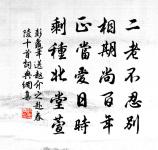 二老不忍別
相期尚百年
正當愛日時
剩種北堂萱
彭龜年送趙介之赴春
陵十首詞典網集